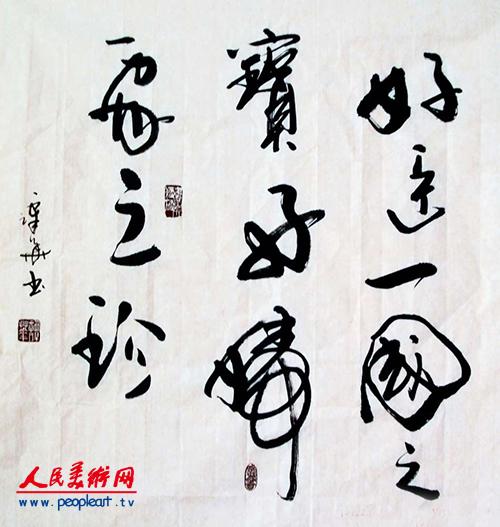 好一國之
寶好婦
一家之珍
華書
人民美術网
www.peopleart.tv